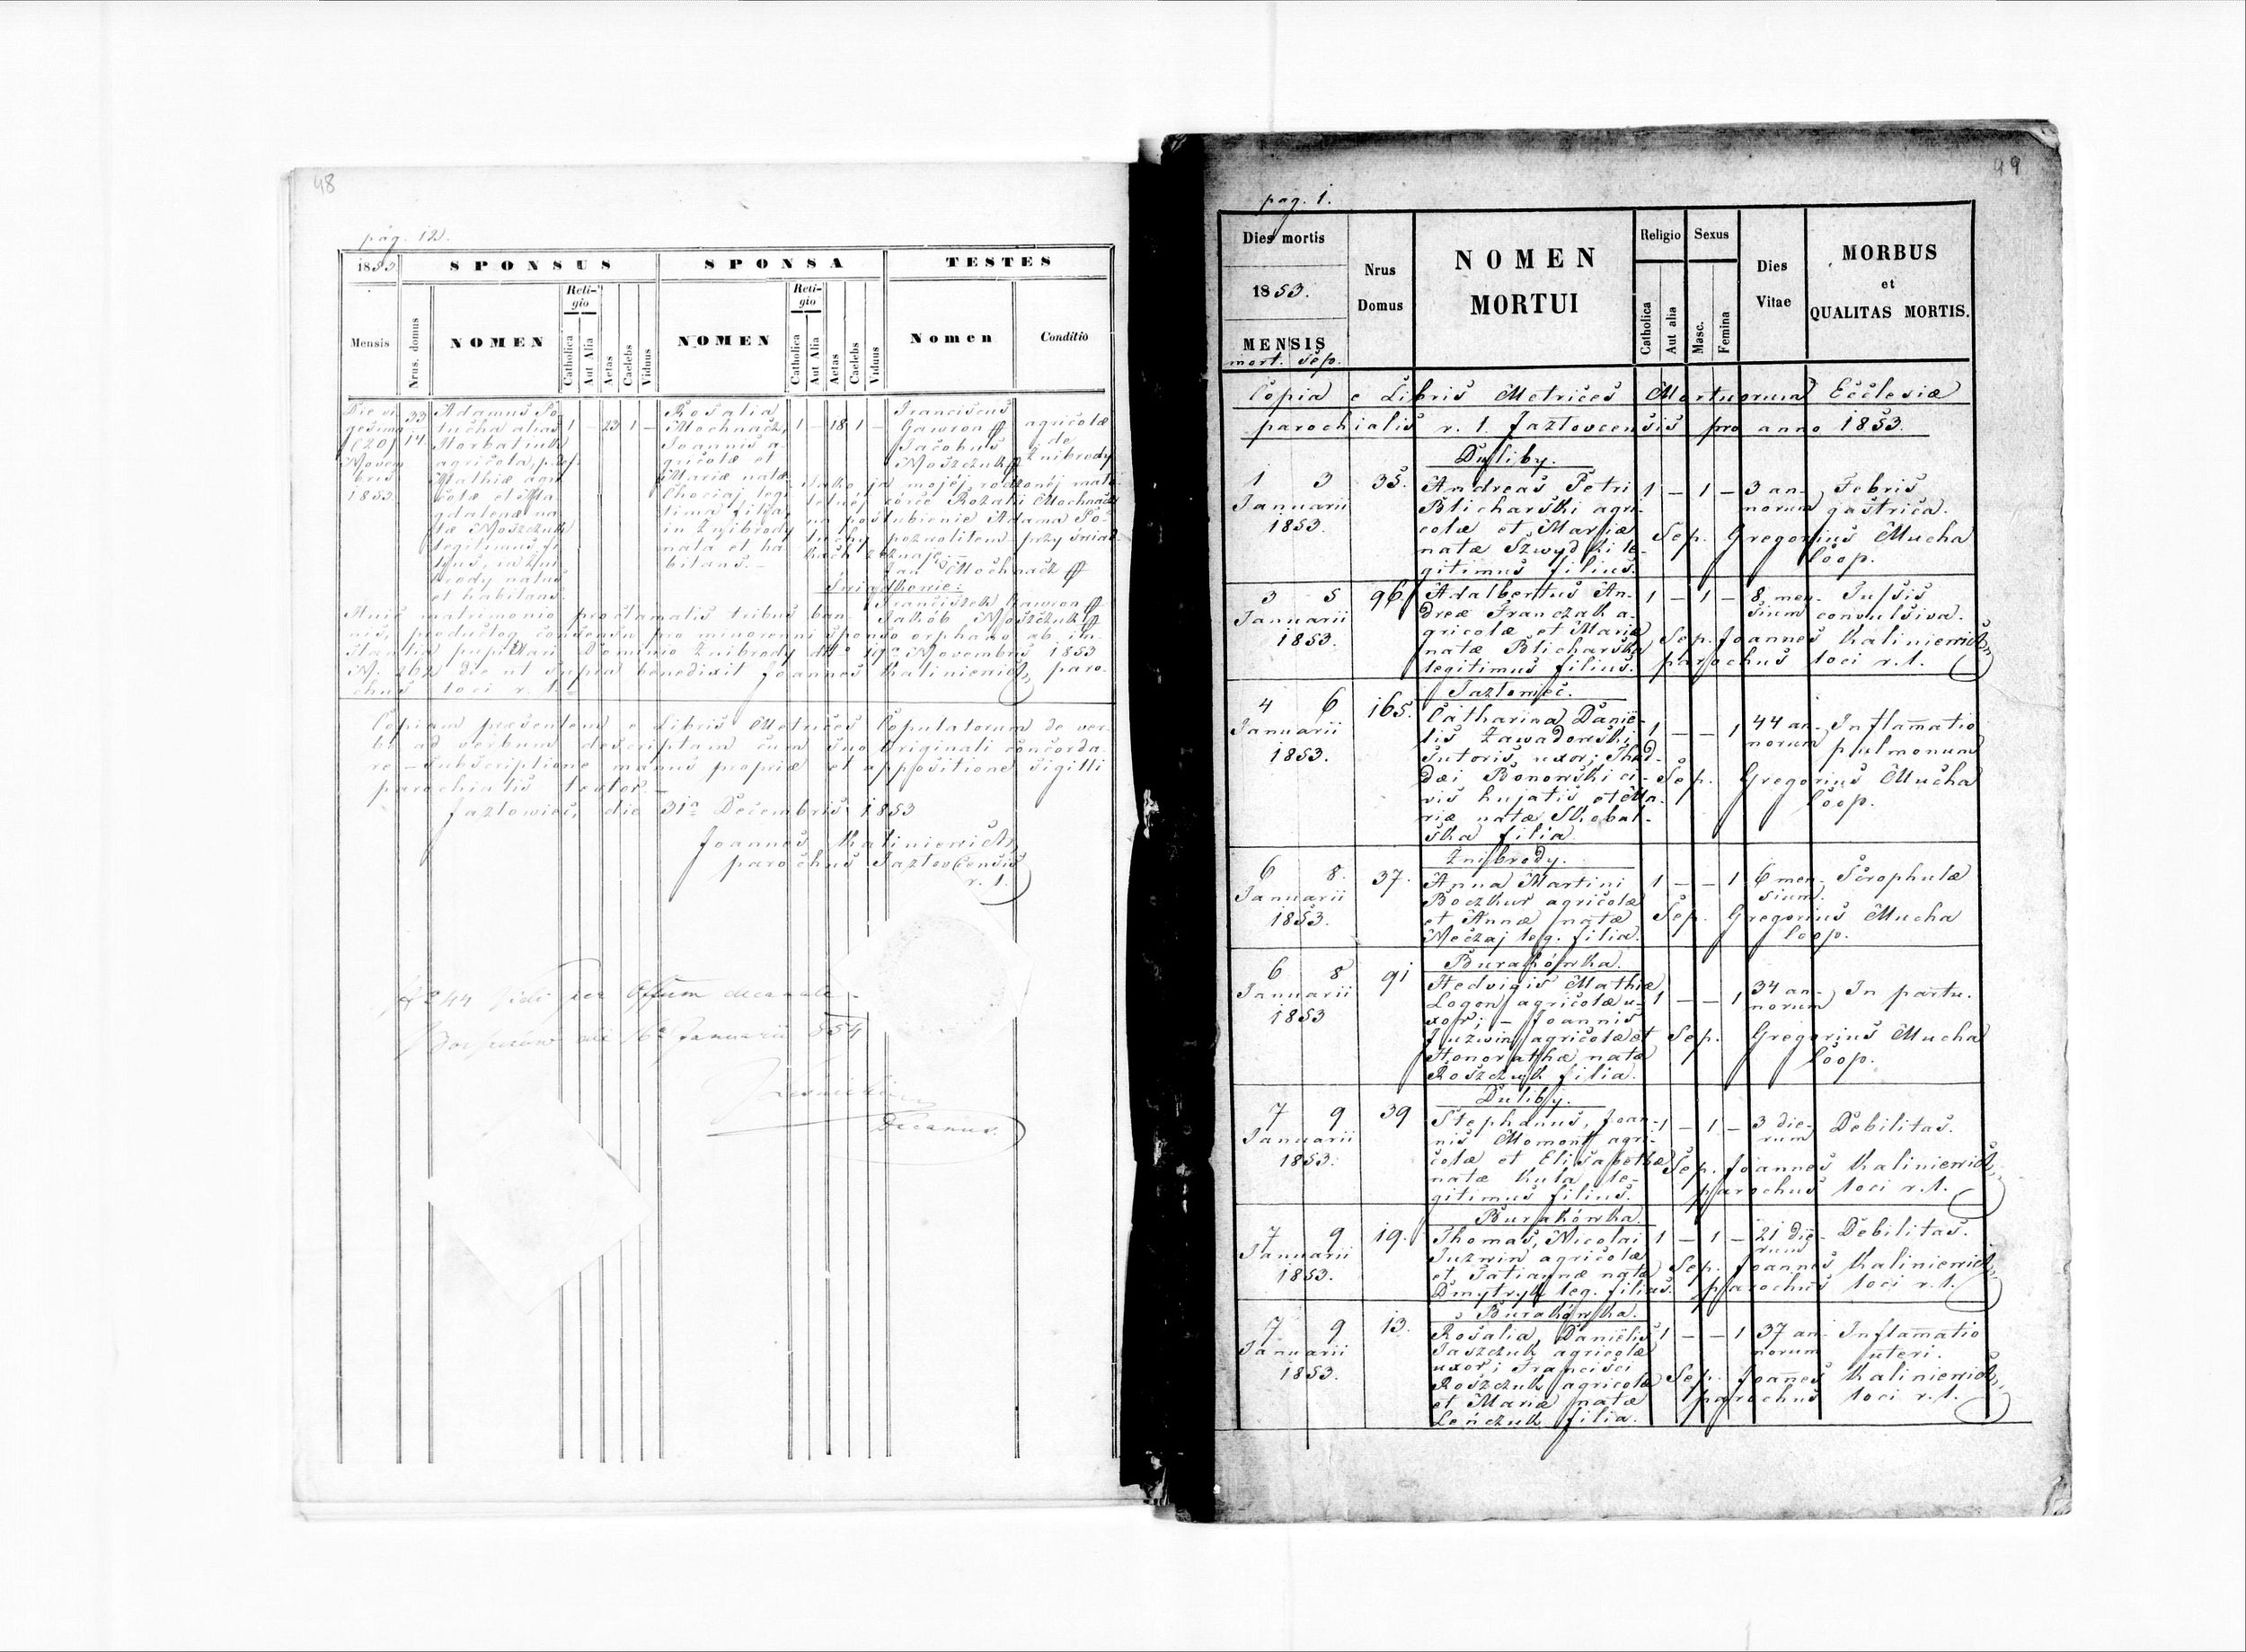 48
pag. 12.
1853.
SPONSUS
SPONSA
TESTES
Mensis
Nrus. domus
NOMEN
Religio
Catholica
Aut Alia
Aetas
Caelebs
Viduus
NOMEN
Religio
Catholica
Aut Alia
Aetas
Caelebs
Viduus
Nomen
Conditio
Die vi
gesima
(20)
Novem
bris
1853.
33
14
Adamus So
tucha alias
Horbatiuk
agricola, p. def.
Mathiæ agri
colæ et Ma
gdalenæ na
tæ Moszczuk
legitimus fi
lius, in Zni
brody natus
et habitans.
1 — 23 1 —
Rosalia
Mochnacz,
Joannis a
gricolæ et
Mariæ natæ
Chociaj, legi
tima filia,
in Znibrody
nata et ha
bitans. —
1 — 18 1 —
Franciscus
Gawron ⸗
Jacobus
Moszczuk
agricolæ
de
Znibrody
Jako ja mojej rodzonej mało
letniej córce Rozalii Mochnacz
na poślubienie Adama So
tuchy pozwoliłem przy świad
kach zeznaje. —
Jan Mochnacz
Świadkowie:
Franciszek Gawron
Jakób Moszczuk
Huic matrimonio proclamatis tribus ban
nis, productoq consensu pro minorenni sponso orphano ab in
stantia pupillari Dominio Znibrody dtto 19a Novembris 1853
N. 262 die ut supra benedixit Joannes Kaliniewicz, paro
chus loci r. l.
Copiam præsentem e Libris Metrices Copulatorum de ver
bo ad verbum descriptam cum suo Originali concorda
re — subscriptione manus propriæ et appositione sigilli
parochialis testor —
Jazlowiec, die 31a Decembris 1853
Joannes Kaliniewicz,
parochus Jazlovcensis
r. l.
244 Vidi per Offum decanale
die 16a Januarii 854
Decanus.
49
pag. 1.
Dies mortis
1853.
MENSIS
mort. Sep.
Nrus
Domus
NOMEN
MORTUI
Religio
Catholica
Aut alia
Sexus
Masc.
Femina
Dies
Vitae
MORBUS
et
QUALITAS MORTIS.
Copia e Libris Metrices Mortuorum Ecclesiæ
parochialis r. l. Jazlovcensis pro anno 1853.
Duliby.
1 3
Januarii
1853.
35.
Andreas Petri
Blicharski agri
colæ et Mariæ
natæ Szwydki le-
gitimus filius.
1 — 1 —
3 an-
norum
Febris
gastrica.
Sep. Gregorius Mucha
Coop.
3 5
Januarii
1853.
96.
Adalbertus An-
dreæ Franczak a-
gricolæ et Mariæ
natæ Blicharska
legitimus filius.
1 — 1 —
8 men-
sium
Tussis
convulsiva.
Sep. Joannes Kaliniewicz,
parochus loci r. l.
Jazlowiec.
4 6
Januarii
1853.
165.
Catharina Danië-
lis Zawadowski,
sutoris, uxor; Thad-
dæi Bonowski ci-
vis hujatis et Ma-
riæ natæ Skobal-
ska filia.
1 — — 1
44 an-
norum
Inflam̄atio
pulmonum
Sep. Gregorius Mucha
Coop.
Znibrody.
6 8.
Januarii
1853.
37.
Anna Martini
Boczkur agricolæ
et Annæ natæ
Neczaj leg. filia.
1 — — 1
6 men-
sium.
Scrophulæ
Sep. Gregorius Mucha
Coop.
Burakówka.
6 8
Januarii
1853
91
Hedvigis Mathiæ
Logon agricolæ u-
xor; — Joannis
Juzwin agricolæ et
Honorathæ natæ
Roszczuk filia.
1 — — 1
34 an-
norum
In partu.
Sep. Gregorius Mucha
Coop.
Duliby.
7 9
Januarii
1853.
39
Stephanus, Joan-
nis Momont agri-
colæ et Elisabethæ
natæ Kula le-
gitimus filius.
1 — 1 —
3 die-
rum
Debilitas.
Sep. Joannes Kaliniewicz,
parochus loci r. l.
Burakówka.
7 9
Januarii
1853.
19.
Thomas, Nicolai
Juzwin agricolæ
et Tatiannæ natæ
Dmytryk leg. filius.
1 — 1 —
21 die-
rum
Debilitas.
Sep. Joannes Kaliniewicz,
parochus loci r. l.
Burakówka.
7 9
Januarii
1853.
13.
Rosalia, Daniëlis
Jaszczuk agricolæ
uxor; Francisci
Roszczuk agricolæ
et Mariæ natæ
Leńczuk filia.
1 — — 1
37 an-
norum
Inflam̄atio
uteri.
Sep. Joan̄es Kaliniewicz,
parochus loci r. l.